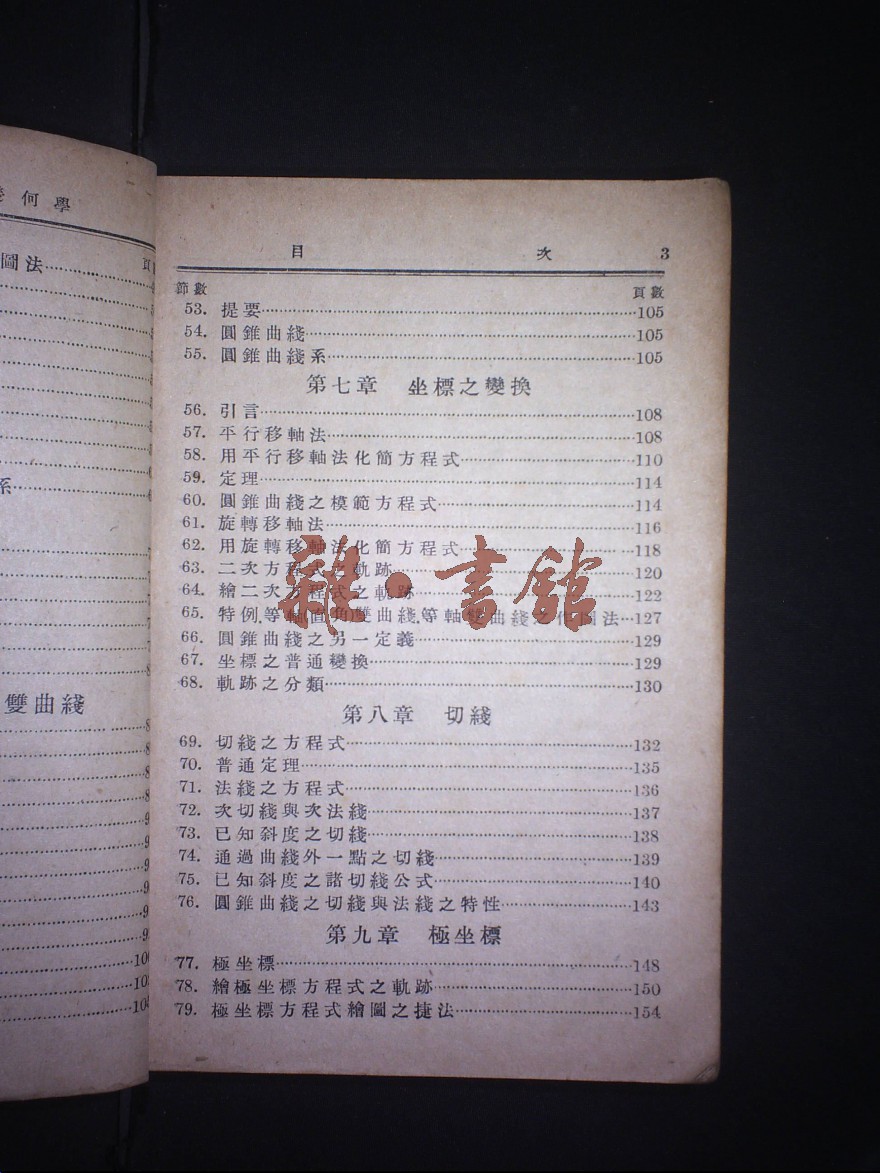 何學
圖法
系
雙曲綫
目 次 3
節數 頁數
53. 提要 105
54. 圓錐曲綫 105
55. 圓錐曲綫系 105
第七章 坐標之變換
56. 引言 108
57. 平行移軸法 108
58. 用平行移軸法化簡方程式 110
59. 定理 114
60. 圓錐曲綫之模範方程式 114
61. 旋轉移軸法 116
62. 用旋轉移軸法化簡方程式 118
63. 二次方程式之軌跡 120
64. 繪二次方程式之軌跡 122
65. 特例,等軸(直角)雙曲綫,等軸雙曲綫之作圖法 127
66. 圓錐曲綫之另一定義 129
67. 坐標之普通變換 129
68. 軌跡之分類 130
雜·書館
第八章 切綫
69. 切綫之方程式 132
70. 普通定理 135
71. 法綫之方程式 136
72. 次切綫與次法綫 137
73. 已知斜度之切綫 138
74. 通過曲綫外一點之切綫 139
75. 已知斜度之諸切綫公式 140
76. 圓錐曲綫之切綫與法綫之特性 143
第九章 極坐標
77. 極坐標 148
78. 繪極坐標方程式之軌跡 150
79. 極坐標方程式繪圖之捷法 154